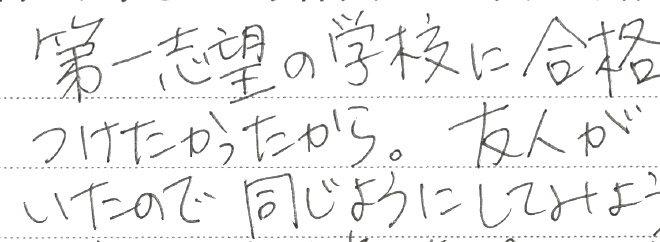 第一志望の学校に合格
つけたかったから。友人が
いたので同じようにしてみよう